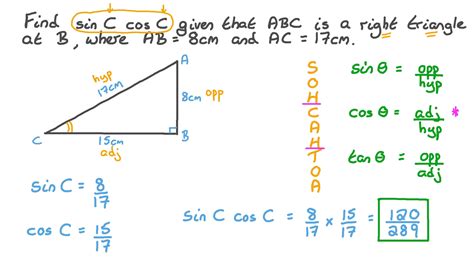 Find sin C cos C given that ABC is a right triangle
at B, where AB = 8cm and AC = 17cm.
A
hyp
17cm
8cm opp
C
15cm
B
adj
S
O
H
C
A
H
T
O
A
sin θ = opp/hyp
cos θ = adj/hyp *
tan θ = opp/adj
sin C = 8/17
cos C = 15/17
sin C cos C = 8/17 × 15/17 = 120/289